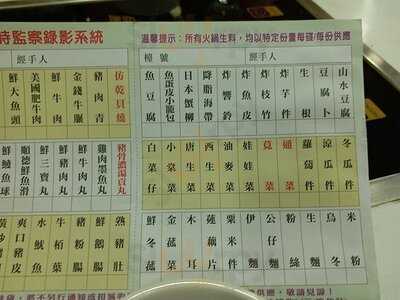 監察錄影系統
溫馨提示：所有火鍋生料，均以特定份量每碟/每份供應
經手人
檯號
經手人
鮮大魚頭
美國肥牛肉
鮮牛肉
豬肉青
魚豆腐
魚蛋皮小籠包
日本蟹柳
降脂海帶
炸響鈴
炸魚皮
炸枝竹
生根
豆腐卜
山水豆腐
鮮鯪魚球
順德鮮魚滑
鮮三寶丸
鮮魚肉丸
鮮牛肉丸
雞肉墨魚丸
豬骨濃湯貢丸
白菜仔
小棠菜
唐生菜
西生菜
油麥菜
娃娃菜
莧菜
通菜
蘿蔔件
涼瓜件
冬瓜件
爽口豬皮
水魷魚
牛栢葉
鮮鵝腸
熟豬肚
鮮冬菇
金菇菜
木耳
蓮藕片
粟米件
伊麵
公仔麵
粉絲
生麵
烏冬
米粉